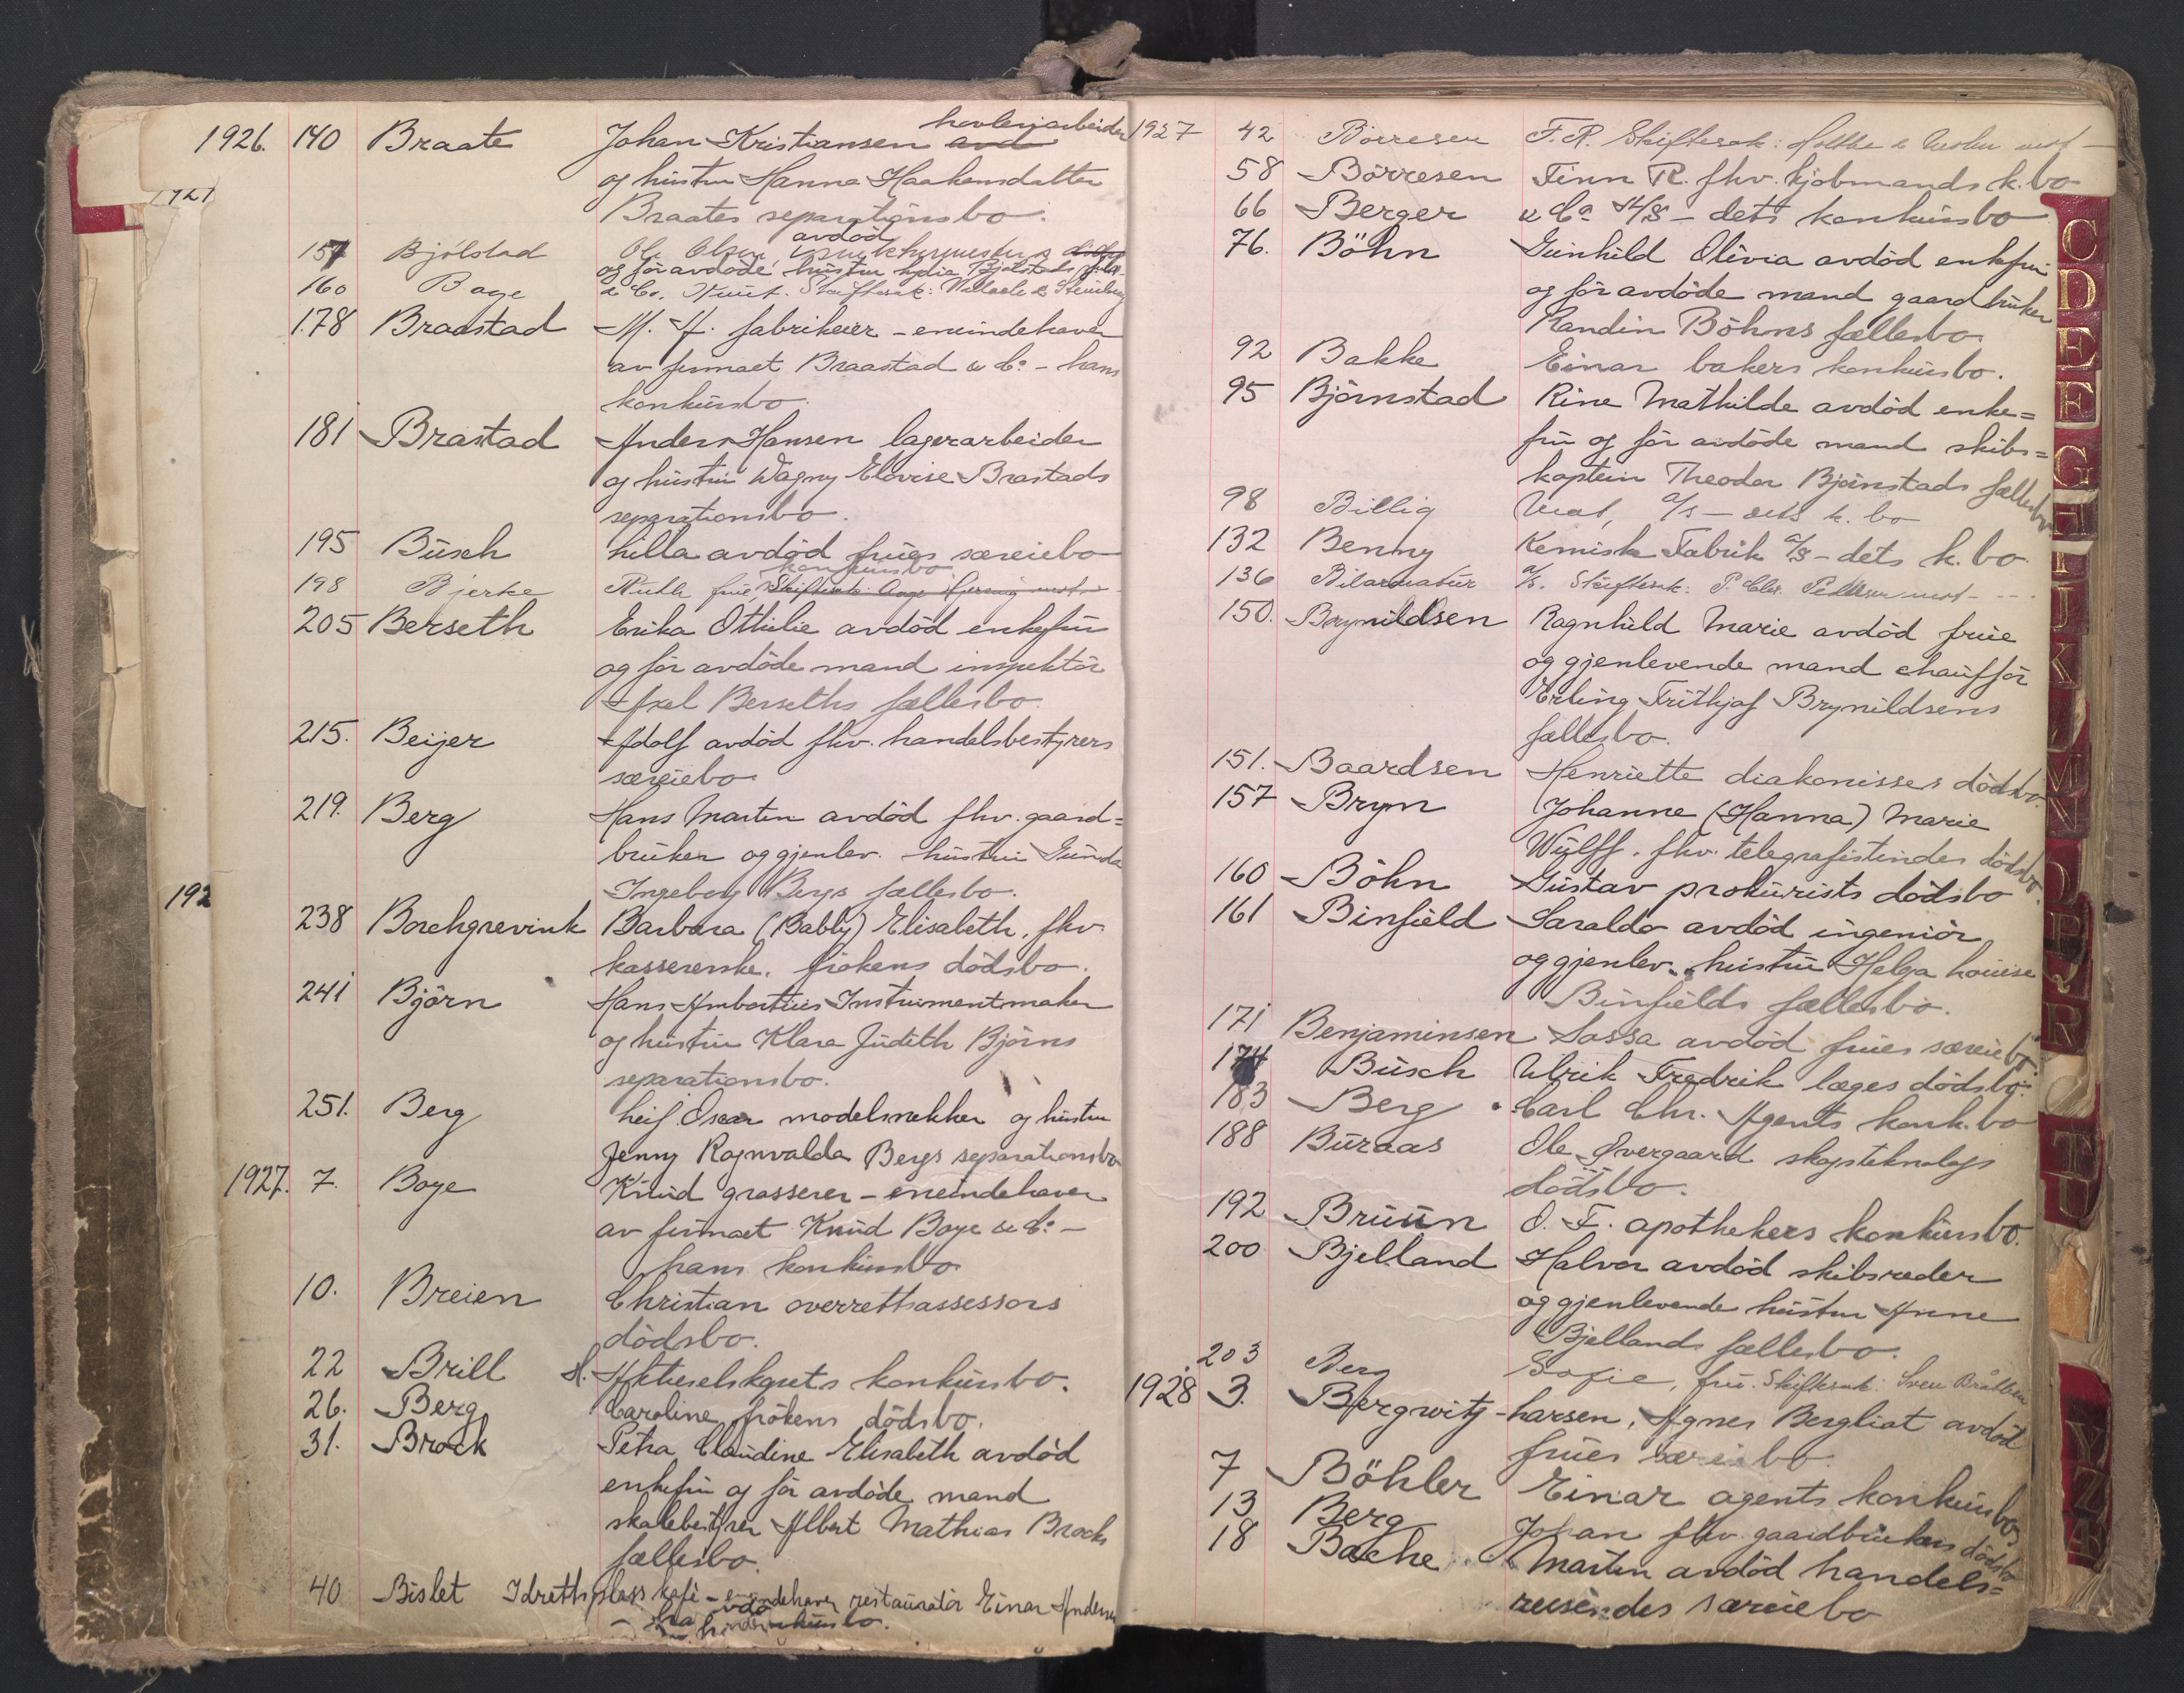 1926. 140 Braate Johan Kristiansen havlerjarbeider
og hustru Hanna Haakensdatter
Braates separationsbo.
1927
157 Bjölstad Ole Olsen avdöd
og för avdöde hustru Lydia Bjölstads
160 Boye & Co. Knut. Skiftesak:
178 Braastad M. H. fabrikeier - eneindehaver
av firmaet Braastad & Co - hans
konkursbo.
181 Brastad Anders Hansen lagerarbeider
og hustru Wagny Elovise Brastads
separationsbo.
195 Busch Lilla avdöd frues særeiebo
198 Bjerke Ruth frue, konkursbo Skiftesak:
205 Berseth Erika Othilie avdöd enkefru
og för avdöde mand inspektör
Axel Berseths fællesbo.
215. Beijer Adolf avdöd fhv. handelsbestyrers
særeiebo
219. Berg Hans Martin avdöd fhv. gaard=
bruker og gjenlev. hustru Gunda
Ingeborg Bergs fællesbo.
192
238 Borchgrevink Barbara (Bably) Elisabeth, fhv.
kassererske, frökens dödsbo.
241 Björn Hans Ambortius Instrumentmaker
og hustru Klara Judith Björns
separationsbo.
251. Berg Leif Oscar modelsnekker og hustru
Jenny Ragnvalda Bergs separationsbo
1927. 7. Boye Knud grosserer - eneindehaver
av firmaet Knud Boye & Co -
hans konkursbo
10. Breien Christian overrettsassessors
dödsbo.
22 Brill A. Aktieselskapets konkursbo.
26. Berg Caroline frökens dödsbo.
31. Brock Petra Claudine Elisabeth avdöd
enkefru og för avdöde mand
skolebestyrer Albert Mathias Brocks
fællesbo.
40 Bislet Idrettsplass kafe - eneindehaver restauratör Einar Andersen
1927 42 Börresen F. R. Skiftesak:
58 Börresen Finn R. fhv. kjöbmands k. bo
66 Berger & Co A/S - dets konkursbo
76. Böhn Gunhild Olivia avdöd enkefru
og för avdöde mand gaardbruker
Randin Böhns fællesbo.
92 Bakke Einar bakers konkursbo.
95 Björnstad Rine Mathilde avdöd enke=
fru og för avdöde mand skibs=
kaptein Theodor Björnstads fællesbo
98 Billig Mat, A/s - dets k. bo
132 Benny Kemisk Fabrik A/S - dets k. bo.
136 Bilarmatur A/s. Skiftesak: P. Chr. Pettersen mot - - -
150. Brynildsen Ragnhild Marie avdöd frue
og gjenlevende mand chaufför
Erling Frithjof Brynildsens
fællesbo.
151. Baardsen Henriette diakonisses dödsbo.
157 Bryn Johanne (Hanna) Marie
Wulff. fhv. telegrafistindes dödsbo.
160 Böhn Gustav prokurists dödsbo
161 Binfield Saraldo avdöd ingeniör
og gjenlev. hustru Helga Louise
Binfields fællesbo.
171 Benjaminsen Sossa avdöd frues særeiebo.
174 Busch Ulrik Fredrik læges dödsbo.
183 Berg Carl Chr. Agents konk. bo
188 Buraas Ole Övergaard skogteknologs
dödsbo.
192 Bruun O. F. apothekers konkursbo.
200 Bjelland Halvor avdöd skibsreder
og gjenlevende hustru Anne
Bjellands fællesbo.
203 Berg Sofie, fru. Skiftesak: Sven Bråthen
1928 3. Bergwitz-Larsen, Agnes Bergliot avdöd
frues særeiebo.
7 Böhler Einar agents konkursbo
13 Berg Johan fhv. gaardbrukers dödsbo
18 Bache Martin avdöd handels=
reisendes særeiebo
C
D
E
F
G
H
I
J
K
M
N
P
R
T
U
Y
Z
Æ